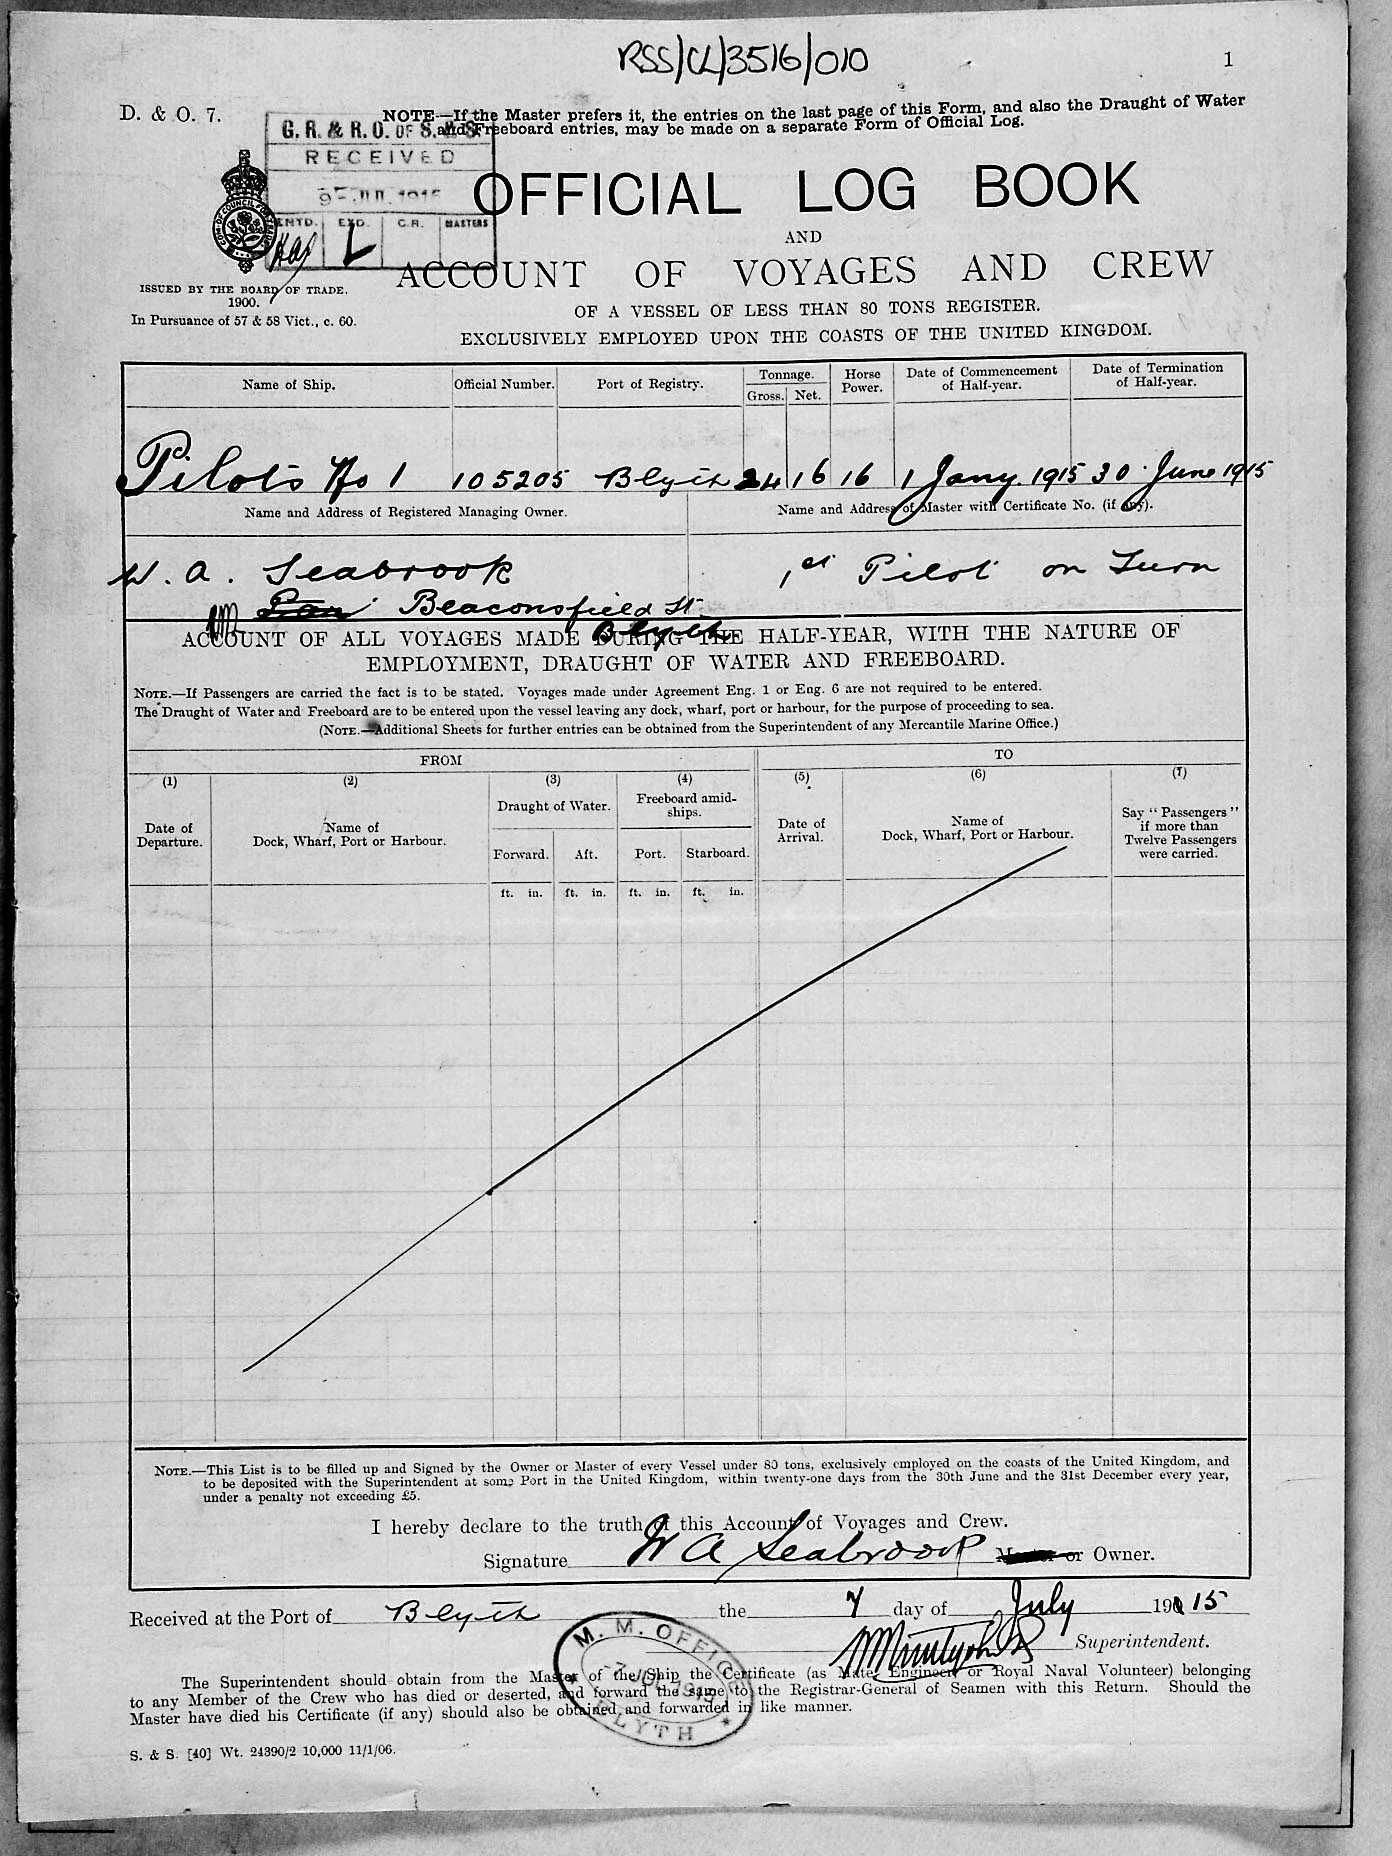 RSS/CL/3516/010
1
D. & O. 7.
NOTE—If the Master prefers it, the entries on the last page of this Form, and also the Draught of Water
and Freeboard entries, may be made on a separate Form of Official Log.
G. R. & R. O. OF S. & S.
RECEIVED
9 - JUL 1915
ENTD. EXD. C.R. MASTERS
L
OFFICIAL LOG BOOK
AND
ACCOUNT OF VOYAGES AND CREW
ISSUED BY THE BOARD OF TRADE.
1900.
In Pursuance of 57 & 58 Vict., c. 60.
OF A VESSEL OF LESS THAN 80 TONS REGISTER.
EXCLUSIVELY EMPLOYED UPON THE COASTS OF THE UNITED KINGDOM.
Name of Ship. Official Number. Port of Registry. Tonnage. Gross. Net. Horse Power. Date of Commencement of Half-year. Date of Termination of Half-year.
Pilots No 1 105205 Blyth 24 16 16 1 Jany 1915 30 June 1915
Name and Address of Registered Managing Owner. Name and Address of Master with Certificate No. (if any).
W. A. Seabrook 1st Pilot on Turn
Beaconsfield St
Blyth
ACCOUNT OF ALL VOYAGES MADE DURING THE HALF-YEAR, WITH THE NATURE OF
EMPLOYMENT, DRAUGHT OF WATER AND FREEBOARD.
NOTE.—If Passengers are carried the fact is to be stated. Voyages made under Agreement Eng. 1 or Eng. 6 are not required to be entered.
The Draught of Water and Freeboard are to be entered upon the vessel leaving any dock, wharf, port or harbour, for the purpose of proceeding to sea.
(NOTE.—Additional Sheets for further entries can be obtained from the Superintendent of any Mercantile Marine Office.)
FROM TO
(1) (2) (3) (4) (5) (6) (7)
Date of Departure. Name of Dock, Wharf, Port or Harbour. Draught of Water. Freeboard amid-ships. Date of Arrival. Name of Dock, Wharf, Port or Harbour. Say "Passengers" if more than Twelve Passengers were carried.
Forward. Aft. Port. Starboard.
ft. in. ft. in. ft. in. ft. in.
NOTE.—This List is to be filled up and Signed by the Owner or Master of every Vessel under 80 tons, exclusively employed on the coasts of the United Kingdom, and
to be deposited with the Superintendent at some Port in the United Kingdom, within twenty-one days from the 30th June and the 31st December every year,
under a penalty not exceeding £5.
I hereby declare to the truth of this Account of Voyages and Crew.
Signature W A Seabrook Master or Owner.
Received at the Port of Blyth the 7 day of July 190 15
Superintendent.
M. M. OFFICE
-7 JUL 1915
BLYTH
The Superintendent should obtain from the Master of the Ship the Certificate (as Mate, Engineer or Royal Naval Volunteer) belonging
to any Member of the Crew who has died or deserted, and forward the same to the Registrar-General of Seamen with this Return. Should the
Master have died his Certificate (if any) should also be obtained and forwarded in like manner.
S. & S. [40] Wt. 24390/2 10,000 11/1/06.